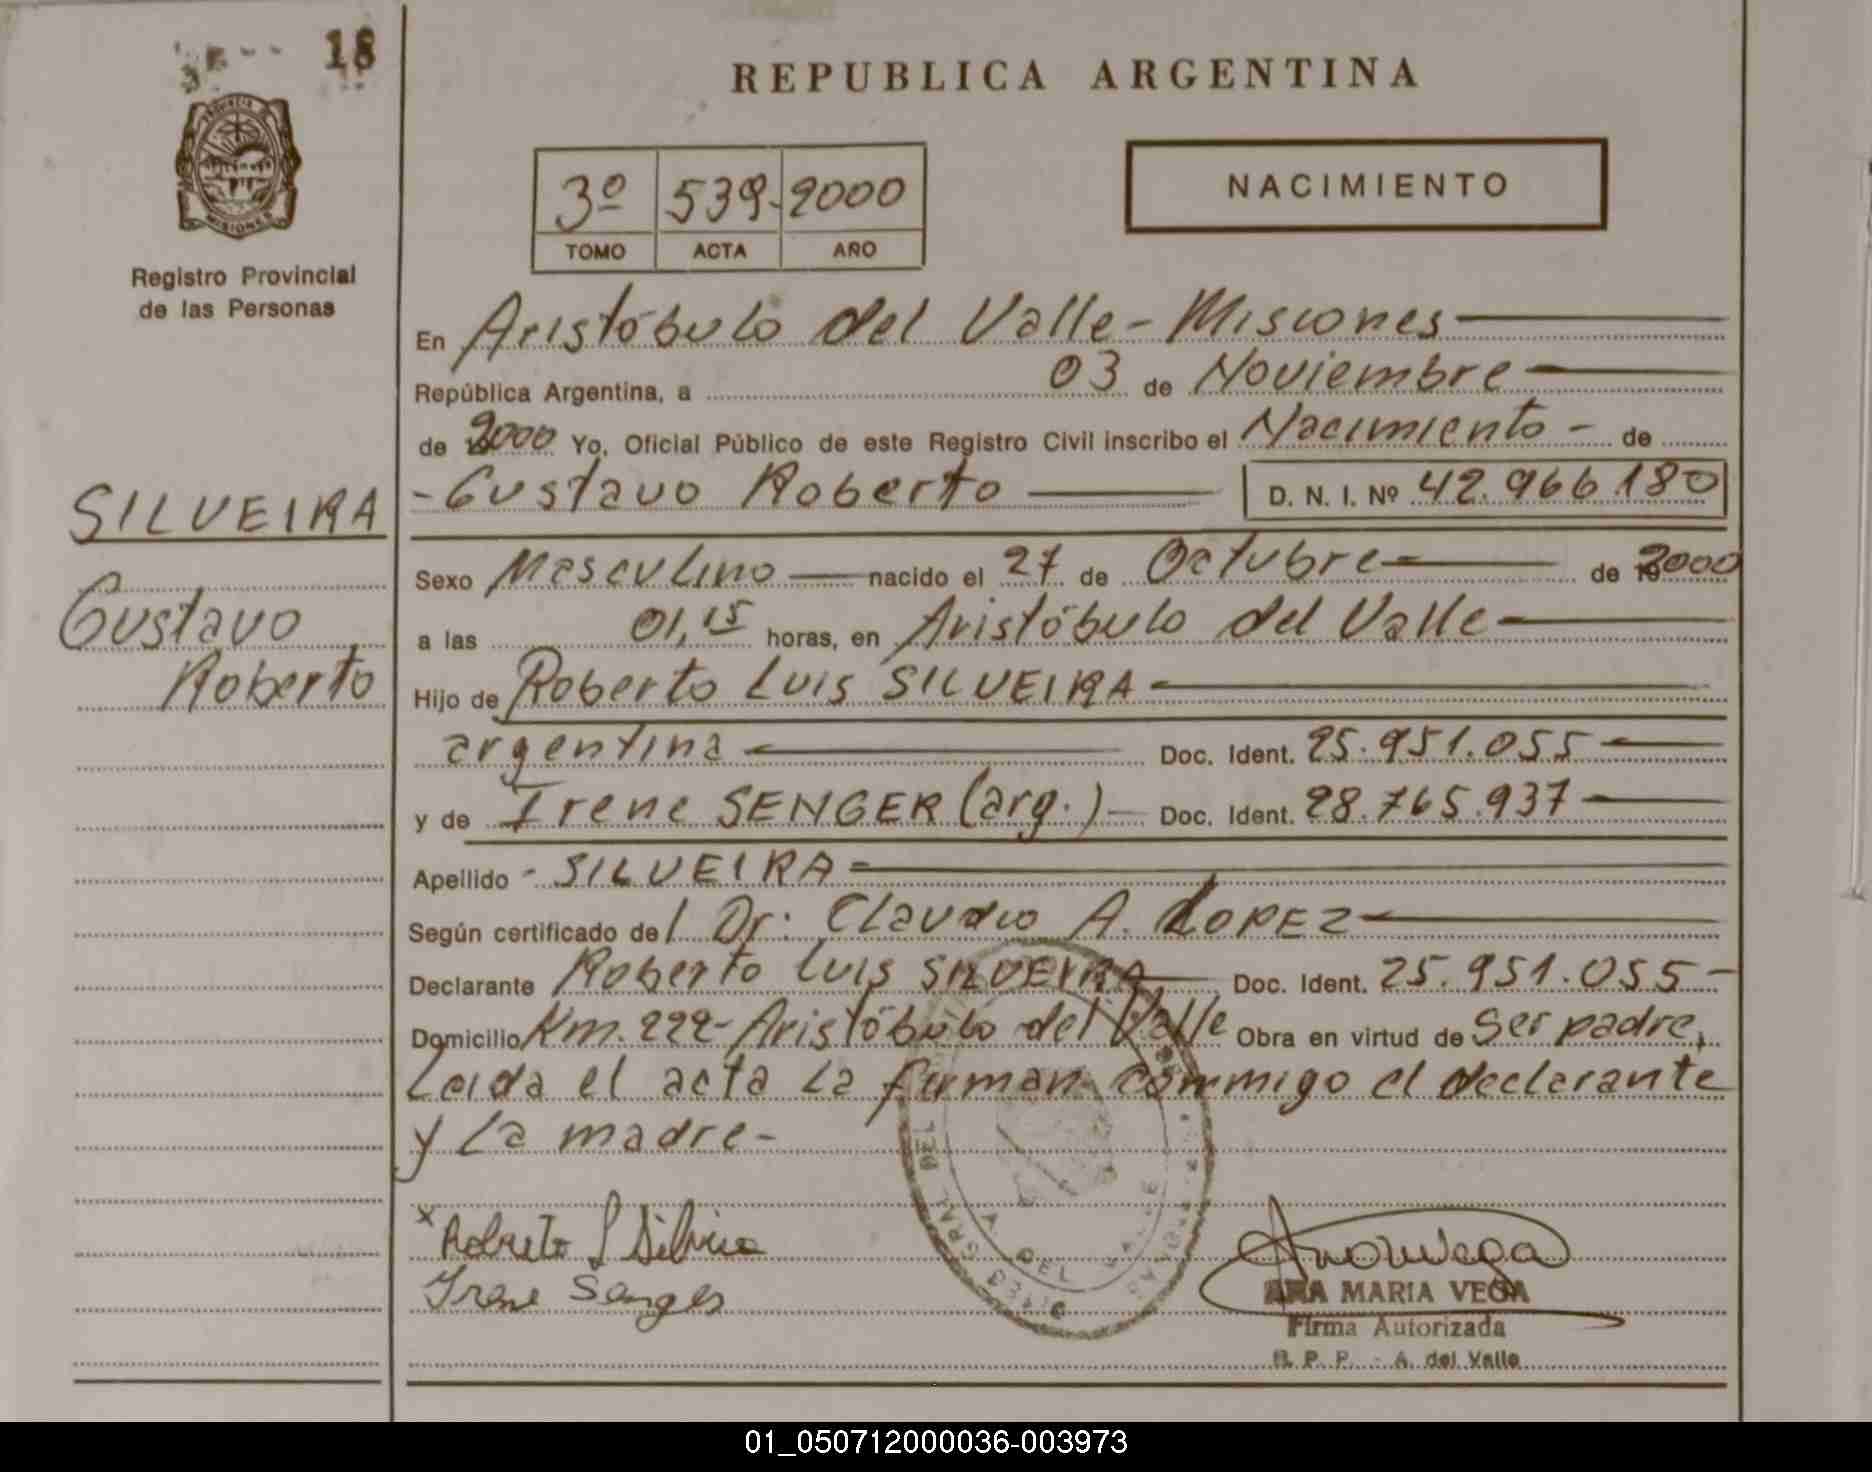 18
PROVINCIA DE
MISIONES
Registro Provincial
de las Personas
SILVEIRA
Gustavo
Roberto
REPUBLICA ARGENTINA
3º 539- 2000
TOMO ACTA AÑO
NACIMIENTO
En Aristóbulo del Valle - Misiones
República Argentina, a 03 de Noviembre
de 2000 Yo, Oficial Público de este Registro Civil inscribo el Nacimiento - de
- Gustavo Roberto D. N. I. Nº 42.966.180
Sexo Masculino nacido el 27 de Octubre de 2000
a las 01,15 horas, en Aristóbulo del Valle
Hijo de Roberto Luis SILVEIRA
argentina Doc. Ident. 25.951.055
y de Irene SENGER (arg.) Doc. Ident. 28.765.937
Apellido - SILVEIRA
Según certificado del Dr: Claudio A. LOPEZ
Declarante Roberto Luis SILVEIRA Doc. Ident. 25.951.055-
Domicilio Km. 222- Aristóbulo del Valle Obra en virtud de Ser padre,
Leida el acta la firman conmigo el declarante
y la madre-
x Roberto L Silveira
Irene Senger
ANA MARIA VEGA
Firma Autorizada
R. P. P. - A. del Valle
01_050712000036-003973